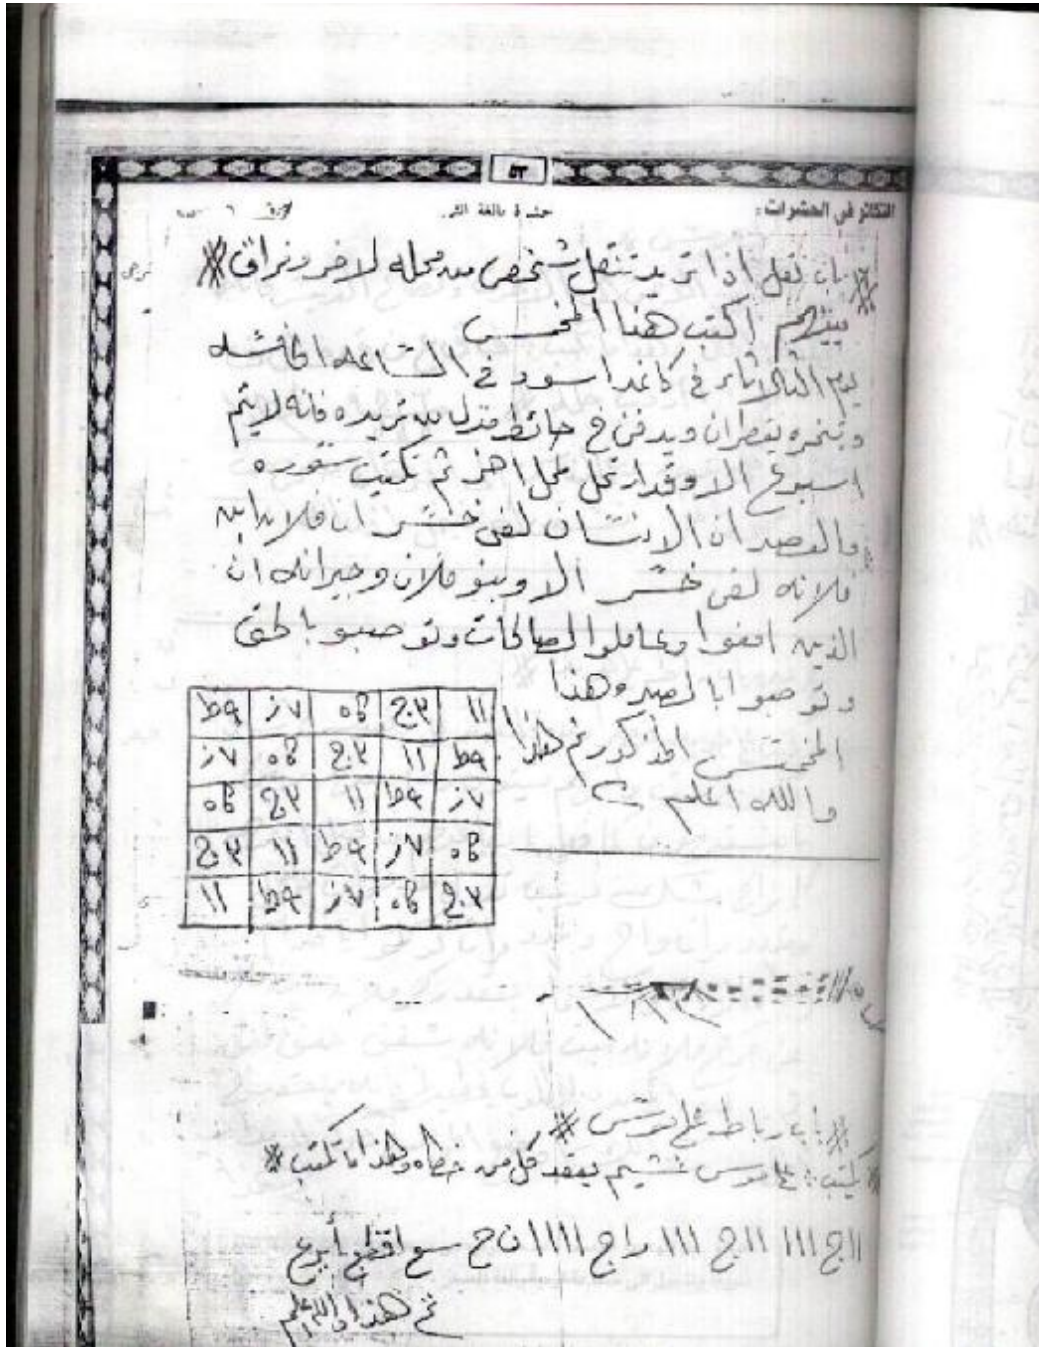 ٥٢
التكاثر في الحشرات:
حشرة بالغة
# باب نقل اذا تريد تنقل شخص من محله لاخر ونراق #
بينهم اكتب هذا المخمس
يوم الثالاثاء في كاغد اسود في الساعه الخامسه
وتبخره بقطران ويدفن في حائط منزل من تريده فانه لايتم
اسبوع الا وقد ارتحل لمحل اخر ثم تكتب سوره
والعصر ان الانسان لفى خسر ان فلان ابن
فلانه لفى خسر الا وبنو فلان وجيرانه ان
الذين امنوا وعاملوا الصالحات وتوصبو با لحق
وتوصبوا بالصبر وهذا
المخمس المذكور تم هذا
والله اعلم
١١ ٣ج ٥ه ٧ز ٩ط
٩ط ١١ ٣ج ٥ه ٧ز
٧ز ٩ط ١١ ٣ج ٥ه
٥ه ٧ز ٩ط ١١ ٣ج
٣ج ٥ه ٧ز ٩ط ١١
# باب رباط على موس #
# يكتب على موس يعقد كل من خطاه وهذا ما تكتب #
١١ج ١١١ ١١ج ١١١ راج ١١١١ ن ح سع اقطع أبرع
تم هذا والله اعلم